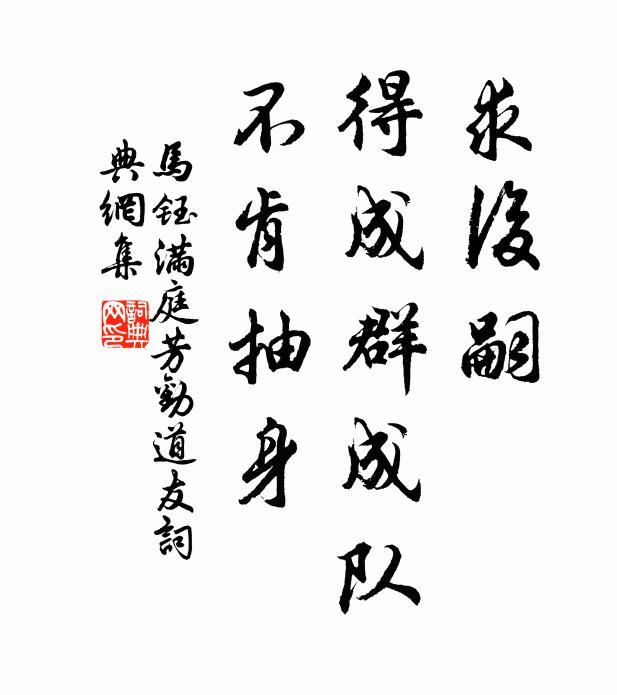 求後嗣
得成群成队
不肯抽身
馬鈺滿庭芳勸道友詞
典網集
詞典
网印